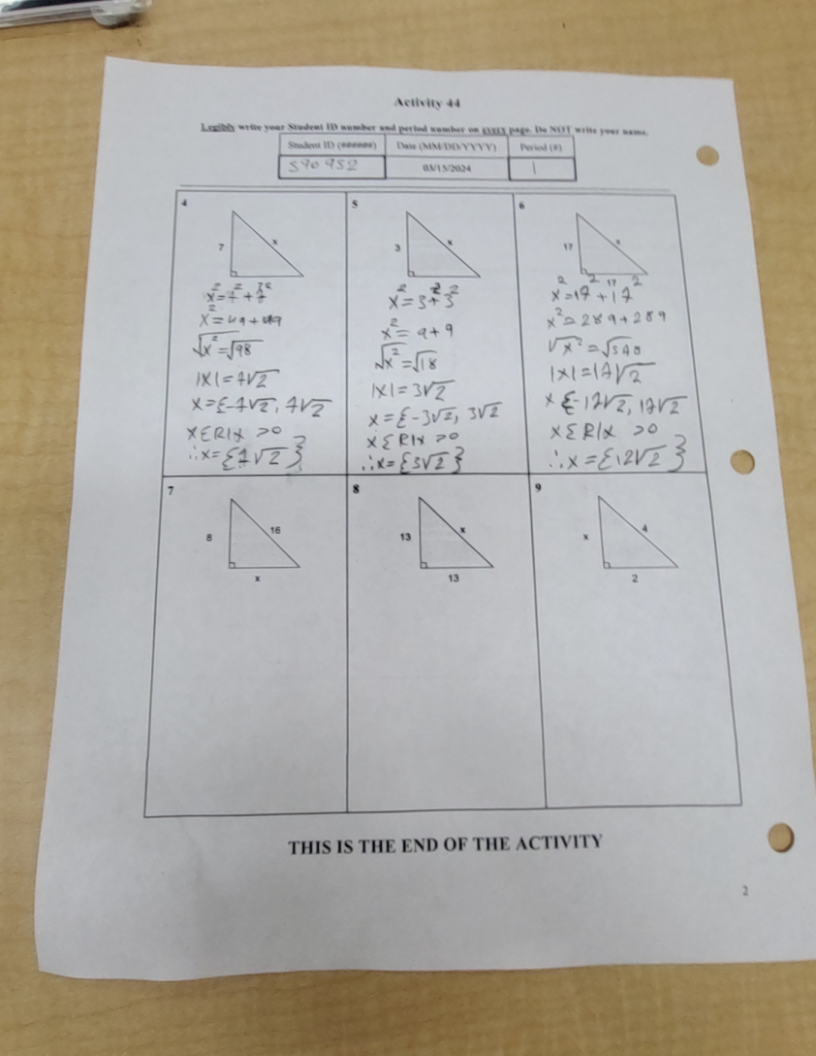 Activity 44
Legibly write your Student ID number and period number on every page. Do NOT write your name.
Student ID (######) Date (MM/DD/YYYY) Period (#)
590952 03/15/2024 1
4
7 x
x²=7²+7²
x²=49+49
√x²=√98
|x|=7√2
x={-7√2, 7√2
x∈R|x >0
∴x={7√2}
5
3 x
x²=3²+3²
x²=9+9
√x²=√18
|x|=3√2
x={-3√2, 3√2
x∈R|x >0
∴x={3√2}
6
17 x
17
x²=17²+17²
x²=289+289
|x|=17√2
x{-17√2, 17√2
x∈R|x >0
7
8 16
x
8
13 x
13
9
x 4
2
THIS IS THE END OF THE ACTIVITY
2